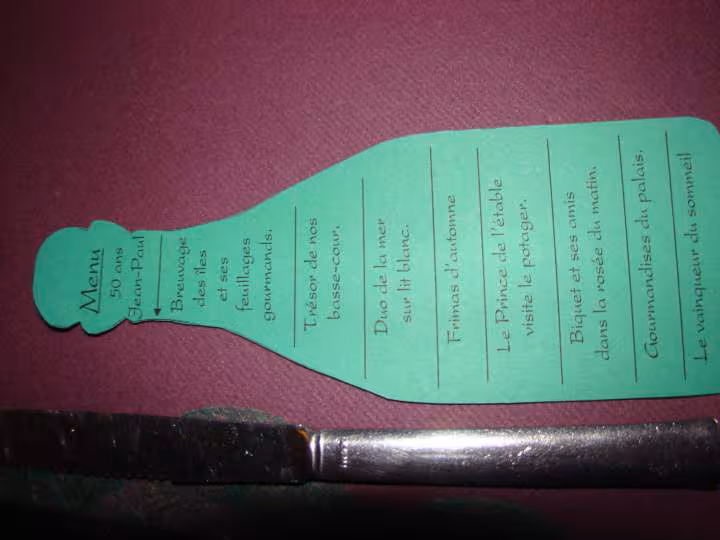 Menu
50 ans
Jean-Paul
Breuvage
des îles
et ses
feuillages
gourmands.
Trésor de nos
basse-cour.
Duo de la mer
sur lit blanc.
Frimas d'automne
Le Prince de l'étable
visite le potager.
Biquet et ses amis
dans la rosée du matin.
Gourmandises du palais.
Le vainqueur du sommeil